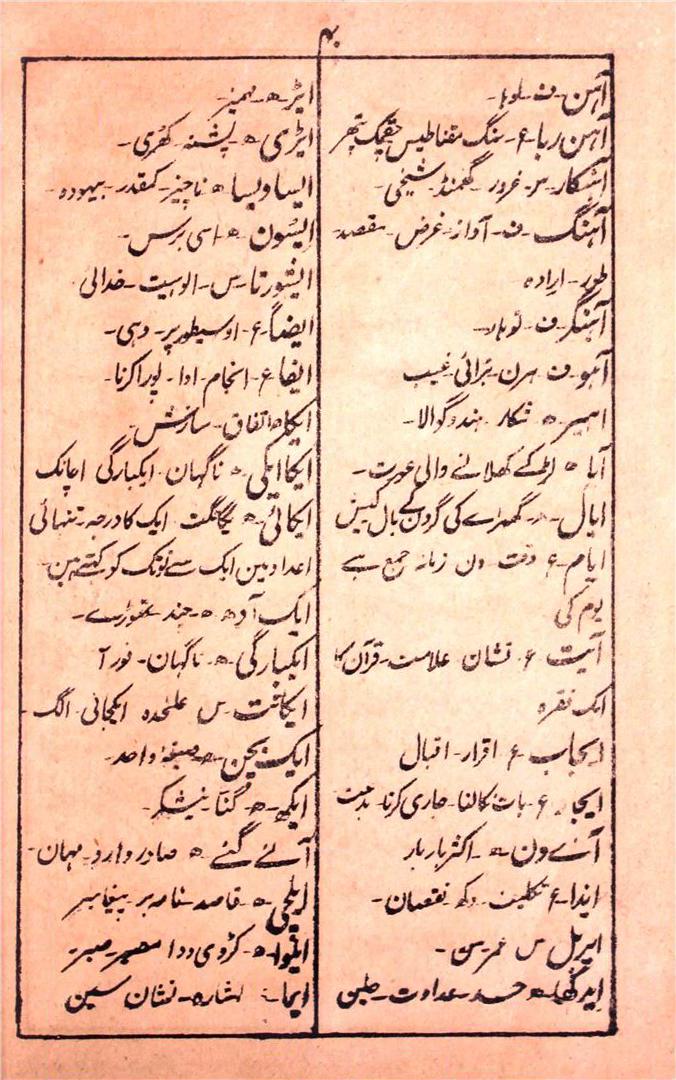 ۴۰
آہن۔ ف۔ لوہا۔
آہن ربا۔ ع۔ سنگ مقناطیس چقمک پتھر
آہنکار۔ س۔ غرور۔ گھمنڈ۔ شیخی۔
آہنگ۔ ف۔ آواز۔ غرض۔ مقصد۔
طور۔ ارادہ
آہنگر۔ ف۔ لوہار۔
آہو۔ ف۔ ہرن۔ برائی۔ عیب
اہیر۔ ھ شکار۔ ہندو گوالا۔
آیا ھ لڑکے کھلانے والی عورت۔
ایال۔ ھ۔ گھوڑے کی گردن کے بال کیس
ایام۔ ع وقت دن زمانہ جمع ہے
یوم کی
آیت ع۔ نشان علامت۔ قرآن کا
ایک فقرہ
ایجاب۔ ع اقرار۔ اقبال
ایجاد۔ ع۔ بات نکالنا۔ جاری کرنا۔ بدعت
آئے دن۔ ھ۔ اکثر بار بار
ایذا۔ ع تکلیف۔ دکھ۔ نقصان۔
س عمر۔ سن۔
ھ حسد۔ عداوت۔ جلن
ایڑ۔ ھ۔ مہمیز۔
ایڑی۔ ھ۔ پشنہ۔ کھری۔
ایسا ویسا ھ ناچیز۔ کمقدر۔ بیہودہ۔
ایسون۔ ھ۔ اسی برس۔
ایشورتا۔ س۔ الوہیت۔ خدائی
ایضاً۔ ع۔ اوسیطور پر۔ وہی۔
ایفا ع۔ انجام۔ ادا۔ پورا کرنا۔
ایکا۔ ھ اتفاق۔ سازش۔
ایکا ایکی۔ ھ ناگہان۔ ایکبارگی اچانک
ایکائی۔ ھ یگانگت ایک کا درجہ۔ تنہائی
اعداد مین ایک سے نو تک کو کہتے ہین۔
ایک آدھ ھ۔ چند تھوڑے۔
ایکبارگی۔ ھ ناگہان۔ فوراً
ایکانت۔ س علیٰحدہ ایکجائی الگ۔
ایک بچن۔ ھ۔ صیغہ واحد۔
ایکھ۔ ھ گنّا۔ نیشکر۔
آئے گئے۔ ھ صادر وارد۔ مہمان۔
ایلچی۔ ھ۔ قاصد۔ نامہ بر۔ پیغامبر
ایلوا۔ ھ۔ کڑوی دوا مصبر۔ صبر۔
ایما۔ اشارہ۔ نشان سین